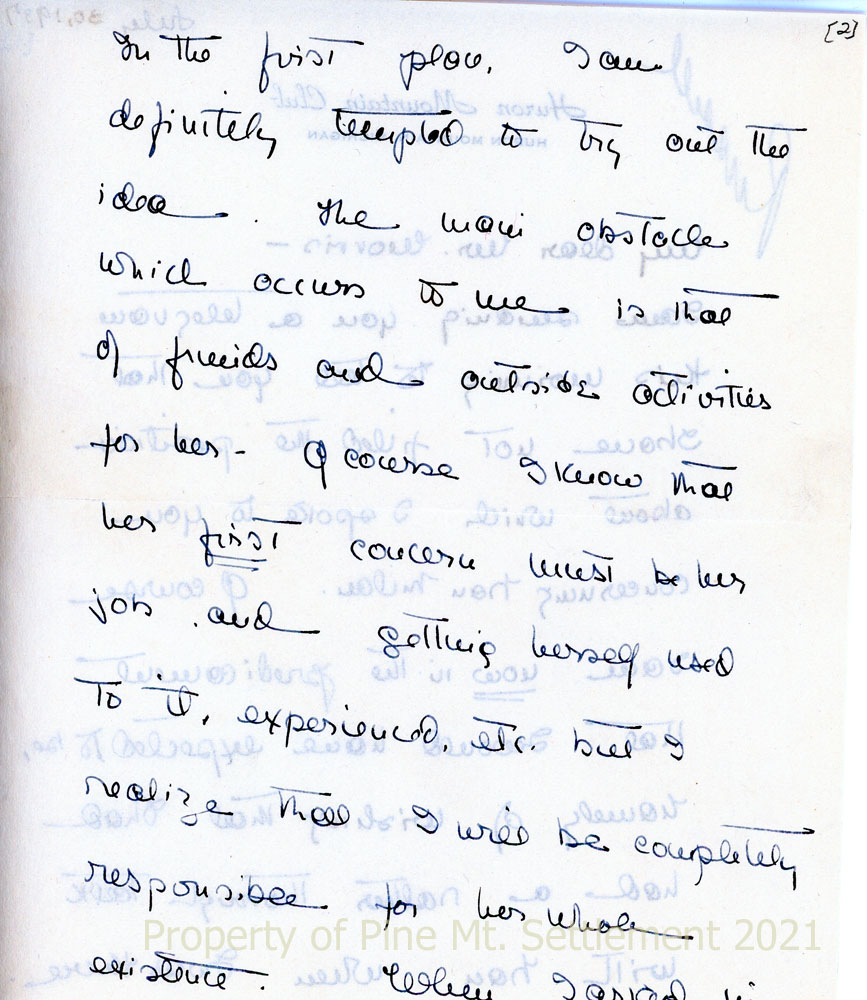 [2]
In the first place, I am
definitely tempted to try out the
idea. The main obstacle
which occurs to me is that
of friends and outside activities
for her - Of course I know that
her first concern must be her
job and getting herself used
to it, experienced, etc. but I
realize that I will be completely
responsible for her whole
existence. When I asked
Property of Pine Mt. Settlement 2021